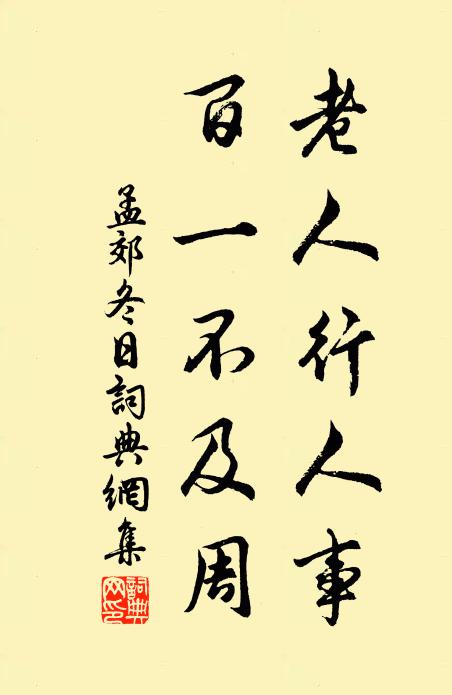 老人行人事
百一不及周
孟郊冬日詞典網集
詞典網印